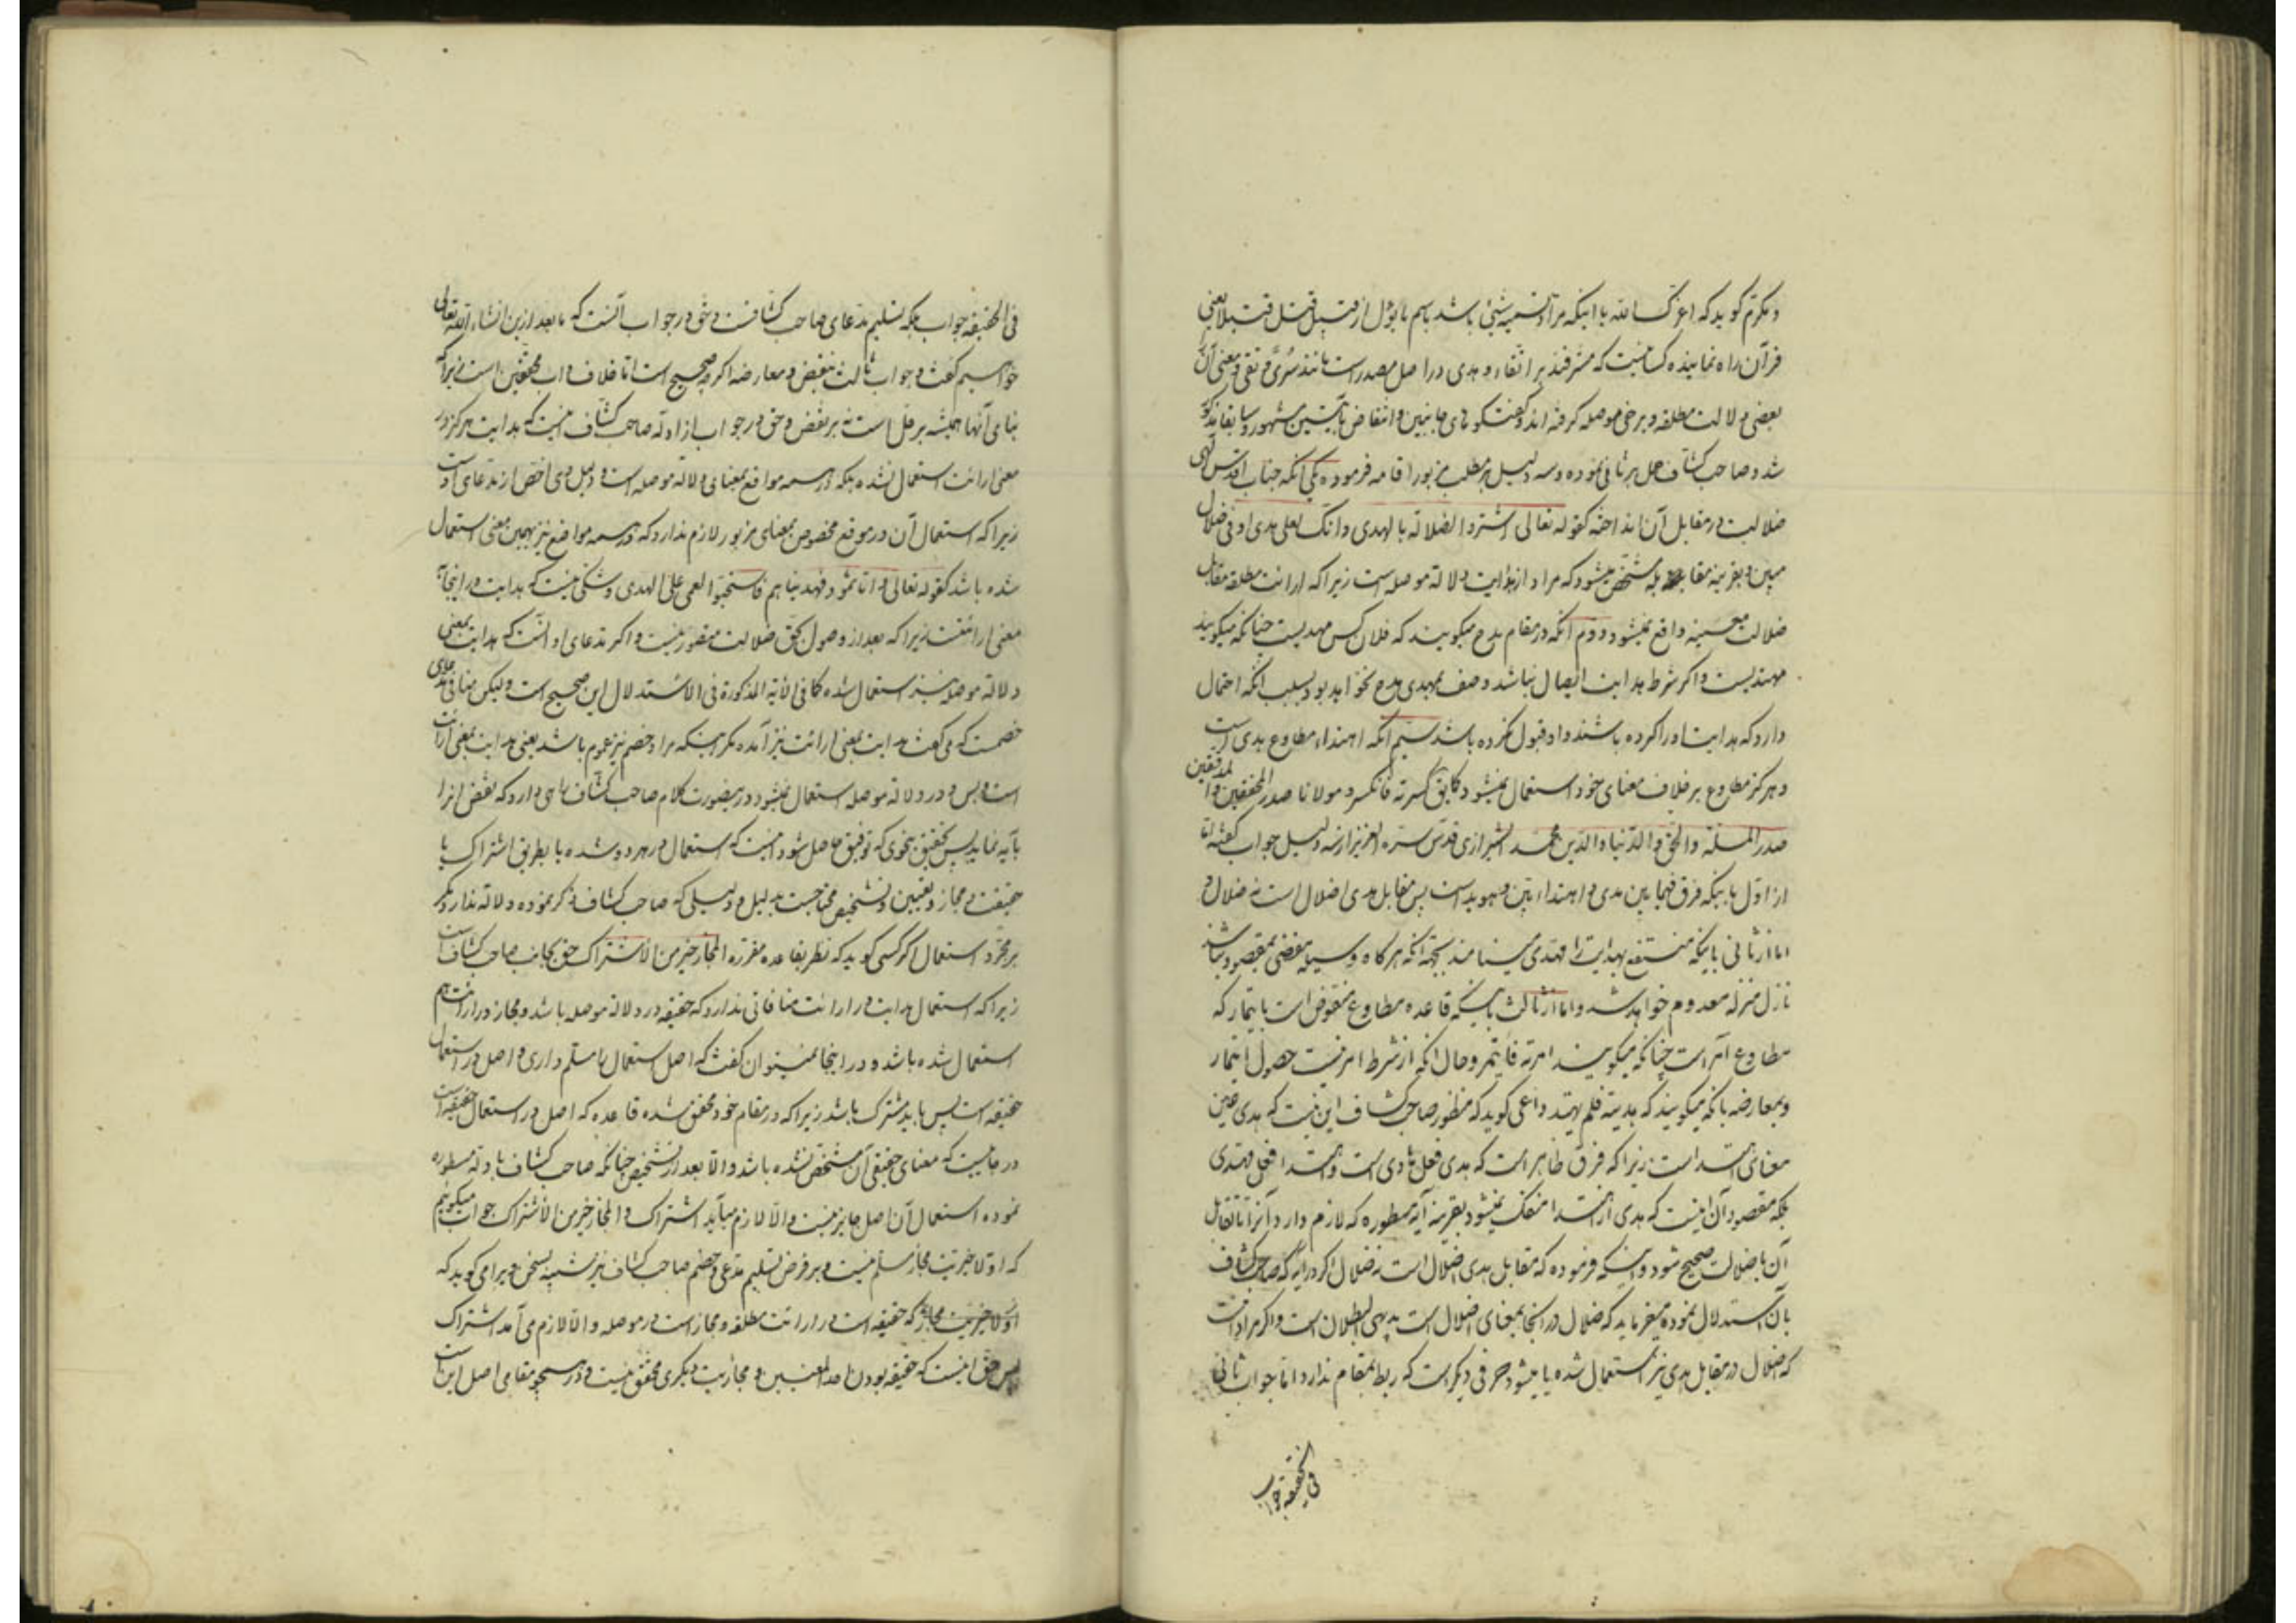 و مکرم گوید که اعزک الله یا اینکه مراد تسمیه شیئی باشد باسم مایؤل از قبیل من قتل قتیلا یعنی
قرآن راه نماینده کسانیست که مشرفند بر اتقاء و هدی در اصل مصدر است مانند سُری و تقی و معنی آن
بعضی دلالت مطلقه و برخی موصله گرفته اند و گفتگوهای جانبین و انتقاض مشهور و سابقا مذکور
شد و صاحب کشاف حمل بر ثانی نموده و سه دلیل بر مطلب مزبور اقامه فرموده یکی آنکه جناب اقدس الهی
ضلالت در مقابل آن انداخته کقوله تعالی اشتروا الضلالة بالهدی و انک لعلی هدی او فی ضلال
مبین و بقرینه مقابله مشخص میشود که مراد از هدایت دلالة موصله است زیرا که ارائت مطلقه مقابل
ضلالت واقع نمیشود دوم آنکه در مقام مدح میگویند که فلان کس مهدیست چنانکه میگویند
مهتدیست و اگر شرط هدایت ایصال نباشد وصف بمهدی مدح نخواهد بود بسبب آنکه احتمال
دارد که هدایت او را کرده باشند و او قبول نکرده باشد سیم آنکه اهتداء مطاوع هدی است
و هرگز مطاوع بر خلاف معنای خود استعمال نمیشود کما یق کسرته فانکسر و مولانا صدر المحققین و المدققین
صدر الملة و الحق و الدنیا و الدین محمد الشیرازی قدس سره العزیز از سه دلیل جواب گفته اما
از اول باینکه فرق فیمابین هدی و اهتداء بین و هویداست پس مقابل هدی اضلال است نه ضلال و
اما از ثانی باینکه منتفع بهدایت را مهدی مینامند بجهة آنکه هرگاه وسیله مفضی بمقصود نباشد
نازل منزله معدوم خواهد شد و اما از ثالث باینکه قاعده مطاوع منقوض است بایتمار که
مطاوع امر است چنانکه میگویند امرته فایتمر و حال آنکه از شرط امر نیست حصول ایتمار
و بمعارضه بانکه میگویند که هدیته فلم یهتد داعی گوید که منظور صاحب کشاف این نیست که هدی عین
معنای اهتدا است زیرا که فرق ظاهر است که هدی فعل هادی است و اهتدا فعل مهتدی
بلکه مقصود آن اینست که هدی از اهتدا منفک نمیشود بقرینه آیه مسطوره که لازم دارد آنرا تا تقابل
آن با ضلالت صحیح شود و اینکه فرموده که مقابل هدی اضلال است نه ضلال اگر در آیه که صاحب کشاف
بآن استدلال نموده میفرماید که ضلال در آنجا بمعنای اضلال است بدیهی البطلان است و اگر مراد است
که اضلال در مقابل هدی نیز استعمال شده یا میشود حرفی دیگر است که ربط بمقام ندارد اما جواب ثانی
فی الحقیقه جواب
فی الحقیقه جواب بلکه تسلیم مدعای صاحب کشافست و حق در جواب آنست که ما بعد ازین انشاء الله تعالی
خواهیم گفت و جواب ثالث بنقض و معارضه اگرچه صحیح است اما خلاف داب محققین است زیرا که
بنای آنها همیشه بر حل است نه بر نقض و حق در جواب از ادله صاحب کشاف اینست که هدایت هرگز در
معنی ارائت استعمال نشده بلکه در همه مواقع بمعنای دلالة موصله است و دلیل وی اخص از مدعای اوست
زیرا که استعمال آن در موقع مخصوص بمعنای مزبور لازم ندارد که در همه مواضع نیز بهمین معنی استعمال
شده باشد کقوله تعالی و اما ثمود فهدیناهم فاستحبوا العمی علی الهدی و شکی نیست که هدایت در اینجا
معنی ارائتست زیرا که بعد از وصول بحق ضلالت متصور نیست و اگر مدعای او آنست که هدایت بمعنی
دلالة موصله نیز استعمال شده کما فی الآیة المذکورة فی الاستدلال این صحیح است ولیکن منافی مدعای
خصمست که می گفت هدایت بمعنی ارائت نیز آمده مگر اینکه مراد خصم نیز عموم باشد یعنی هدایت بمعنی ارائت
است و بس و در دلالة موصله استعمال نمیشود در یصورت کلام صاحب کشاف راهی دارد که نقض آنرا
بآیه نماید پس تحقیق بنحوی که توفیق حاصل شود اینست که استعمال در هر دو شده یا بطریق اشتراک یا
حقیقت و مجاز و تعیین و تشخیص محتاجست بدلیل و دلیلی که صاحب کشاف ذکر نموده دلالة ندارد مگر
بر مجرد استعمال اگر کسی گوید که نظر بقاعده مقرره المجاز خیر من الاشتراک حق بجانب صاحب کشاف است
زیرا که استعمال هدایت در ارائت منافاتی ندارد که حقیقه در دلالة موصله باشد و مجاز در ارائت هم
استعمال شده باشد و در اینجا نمیتوان گفت که اصل استعمال را مسلم داری و اصل در استعمال
حقیقه است پس باید مشترک باشد زیرا که در مقام خود محقق شده قاعده که اصل در استعمال حقیقه است
در جاییست که معنای حقیقی آن مشخص نشده باشد و الا بعد از تشخیص چنانکه صاحب کشاف بادله مسطوره
نموده استعمال آن اصل جایز نیست و الا لازم میآید اشتراک و المجاز خیر من الاشتراک جواب میگوییم
که اولا خیریت مجاز مسلم نیست و بر فرض تسلیم مدعی خصم صاحب کشاف نیز بسخن ویرا می گوید که
که حقیقه است در ارائت مطلقه و مجاز است در موصله و الا لازم می آمد اشتراک
پس حق اینست که حقیقه بودن احد المعنیین و مجازیت دیگری محقق نیست و در همچو مقامی اصل اینست